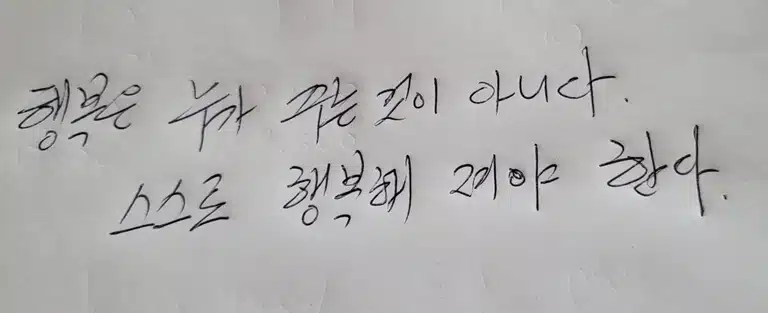 행복은 누가 주는 것이 아니다.
스스로 행복해 져야 한다.